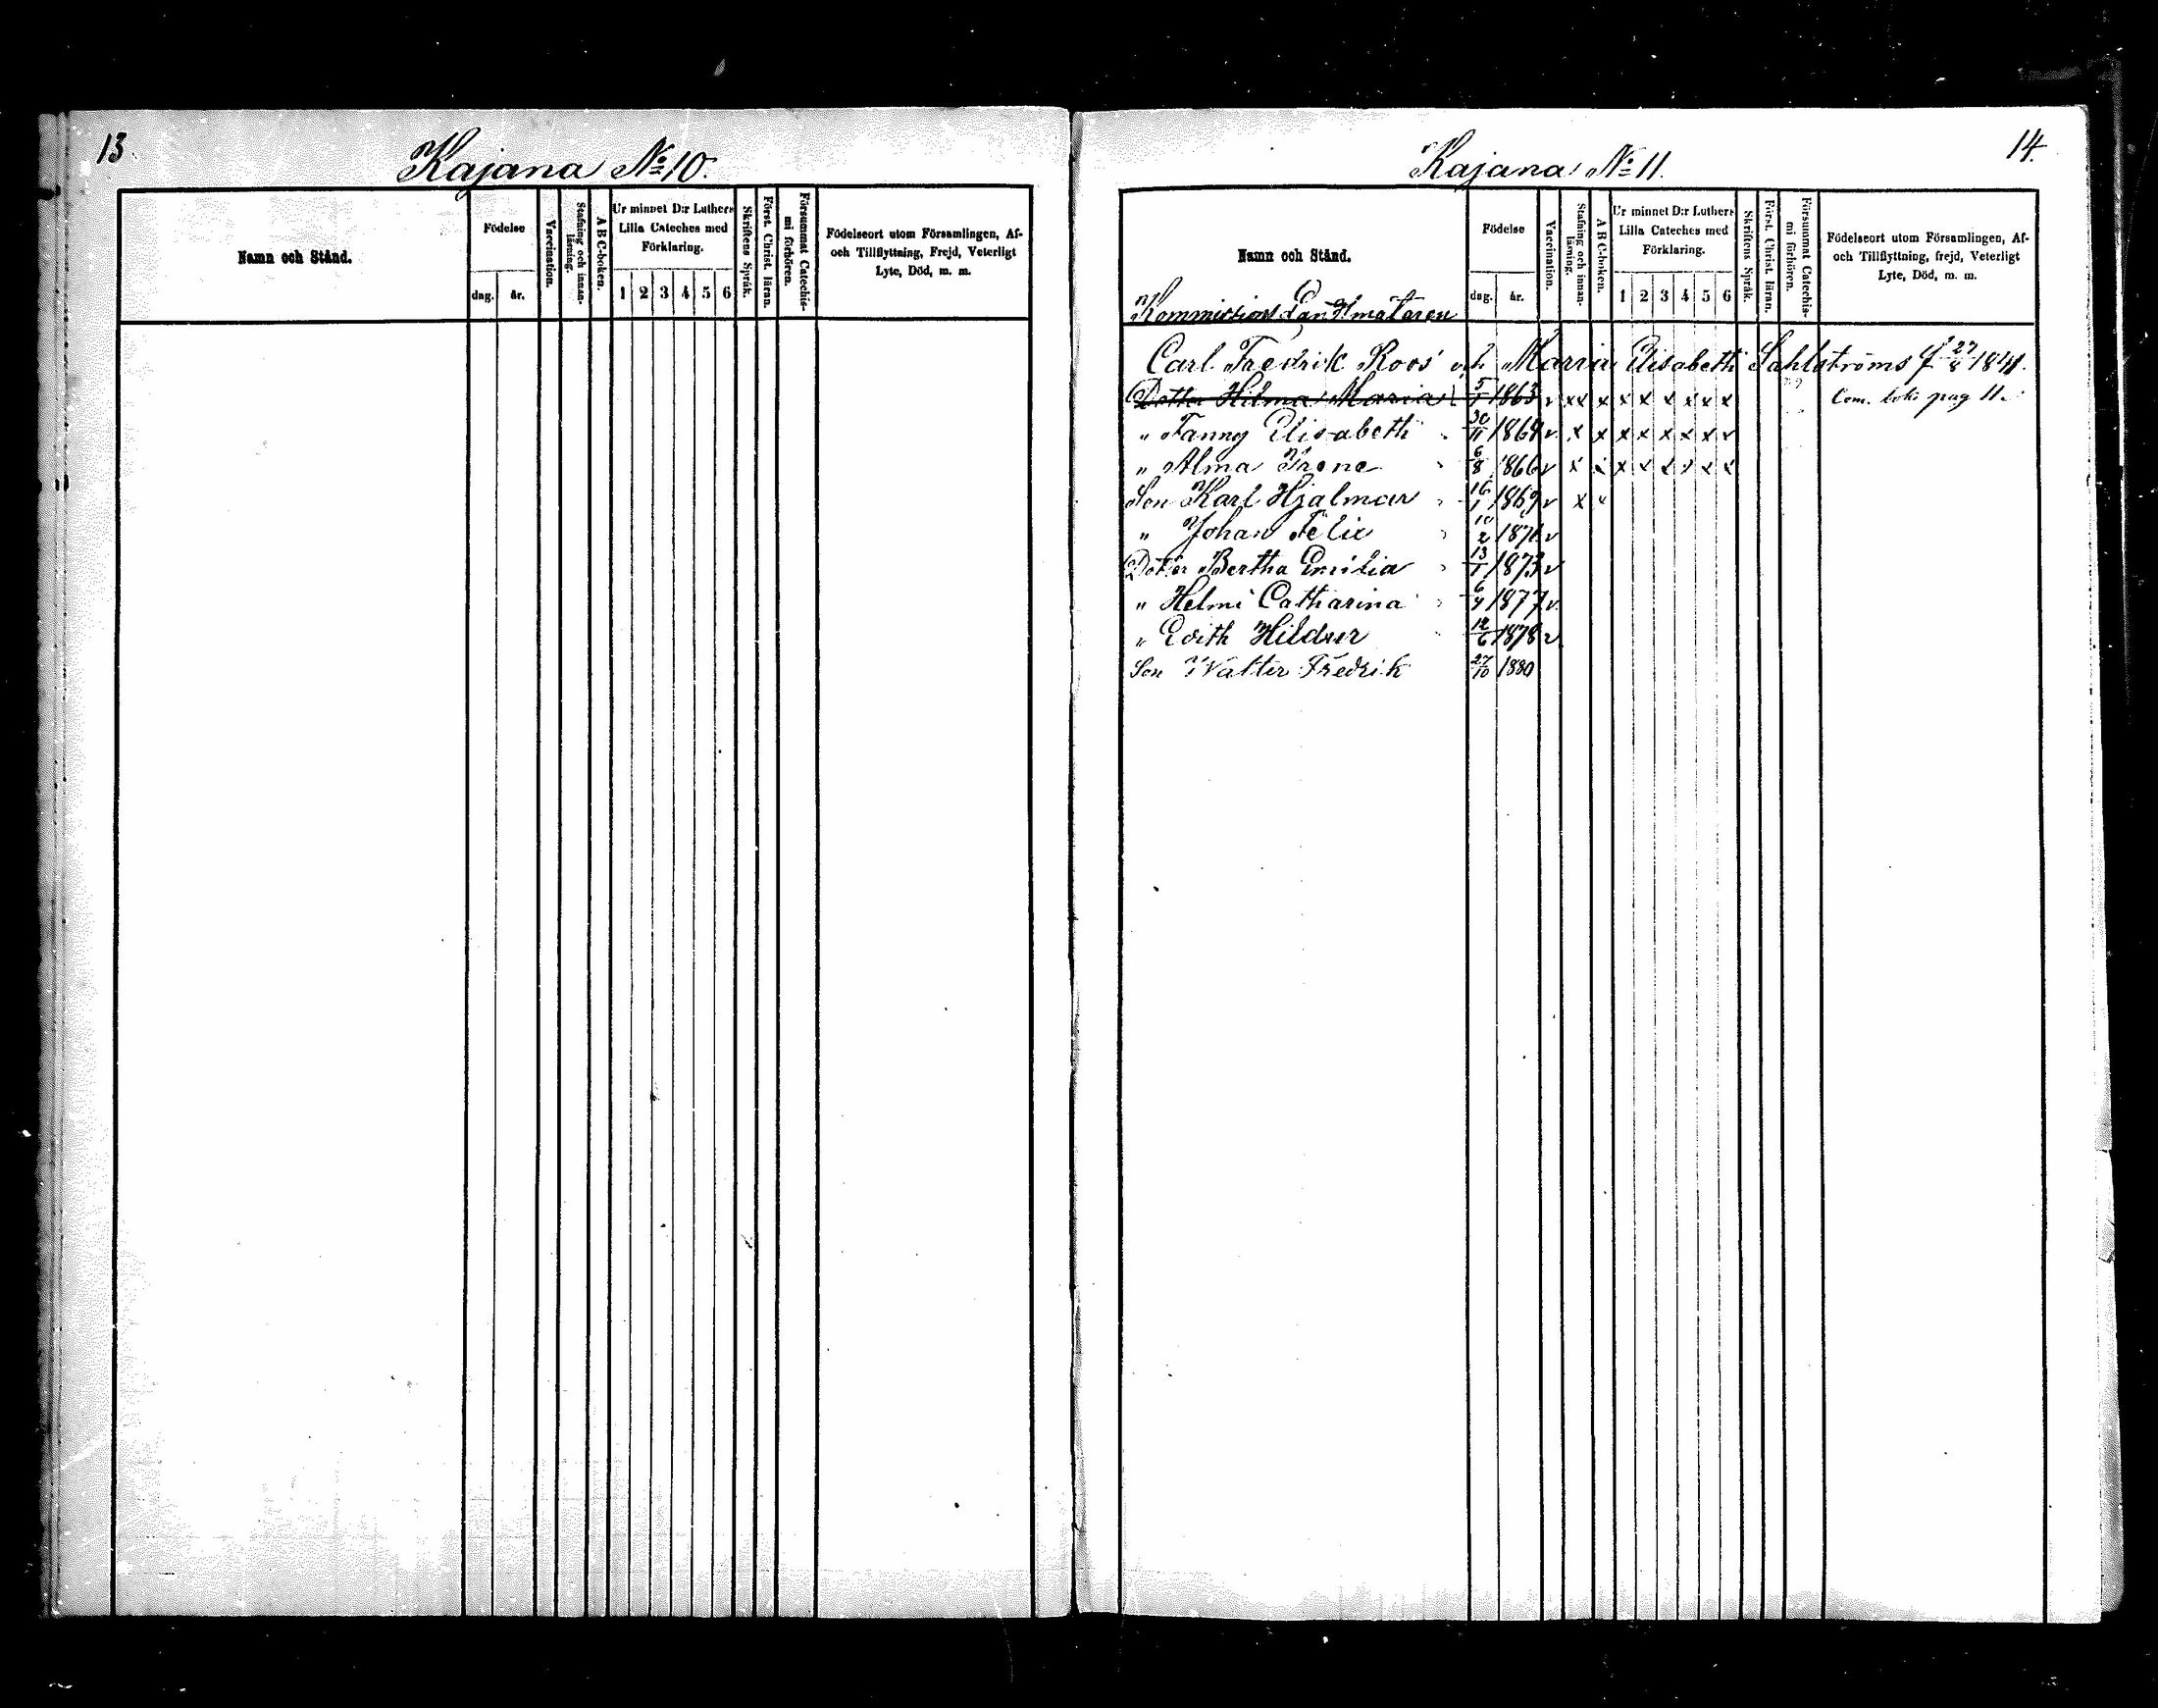 13
Kajana No 10.
Namn och Stånd.
Födelse
dag. år.
Vaccination.
Stafning och innan-
läsning.
A B C-boken.
Ur minnet D:r Luthers
Lilla Cateches med
Förklaring.
1 2 3 4 5 6
Skriftens Språk.
Först. Christ. läran.
Försummat Catechis-
mi förhören.
Födelseort utom Församlingen, Af-
och Tillflyttning, Frejd, Veterligt
Lyte, Död, m. m.
14.
Kajana No 11.
Namn och Stånd.
Födelse
dag. år.
Vaccination.
Stafning och innan-
läsning.
A B C-boken.
Ur minnet D:r Luthers
Lilla Cateches med
Förklaring.
1 2 3 4 5 6
Skriftens Språk.
Först. Christ. läran.
Försummat Catechis-
mi förhören.
Födelseort utom Församlingen, Af-
och Tillflyttning, frejd, Veterligt
Lyte, Död, m. m.
Kommissions Landtmätaren
Carl Fredrik Roos' och Maria Elisabeth Sahlströms f 27/8 1841.
Dotter Hilma Maria 5/1 1863 v xx x x x x x x x Com. bok pag 11.
" Fanny Elisabeth 30/11 1864 v x x x x x x x v
" Alma Irene 6/8 1866 v x x x x x v x x
Son Karl Hjalmar 16/1 1869 v x "
" Johan Felix 10/2 1871 v
Dotter Bertha Emilia 13/1 1873 v
" Helmi Catharina 6/4 1877 v
" Edith Hildur 12/6 1878 v
Son Walter Fredrik 27/10 1880